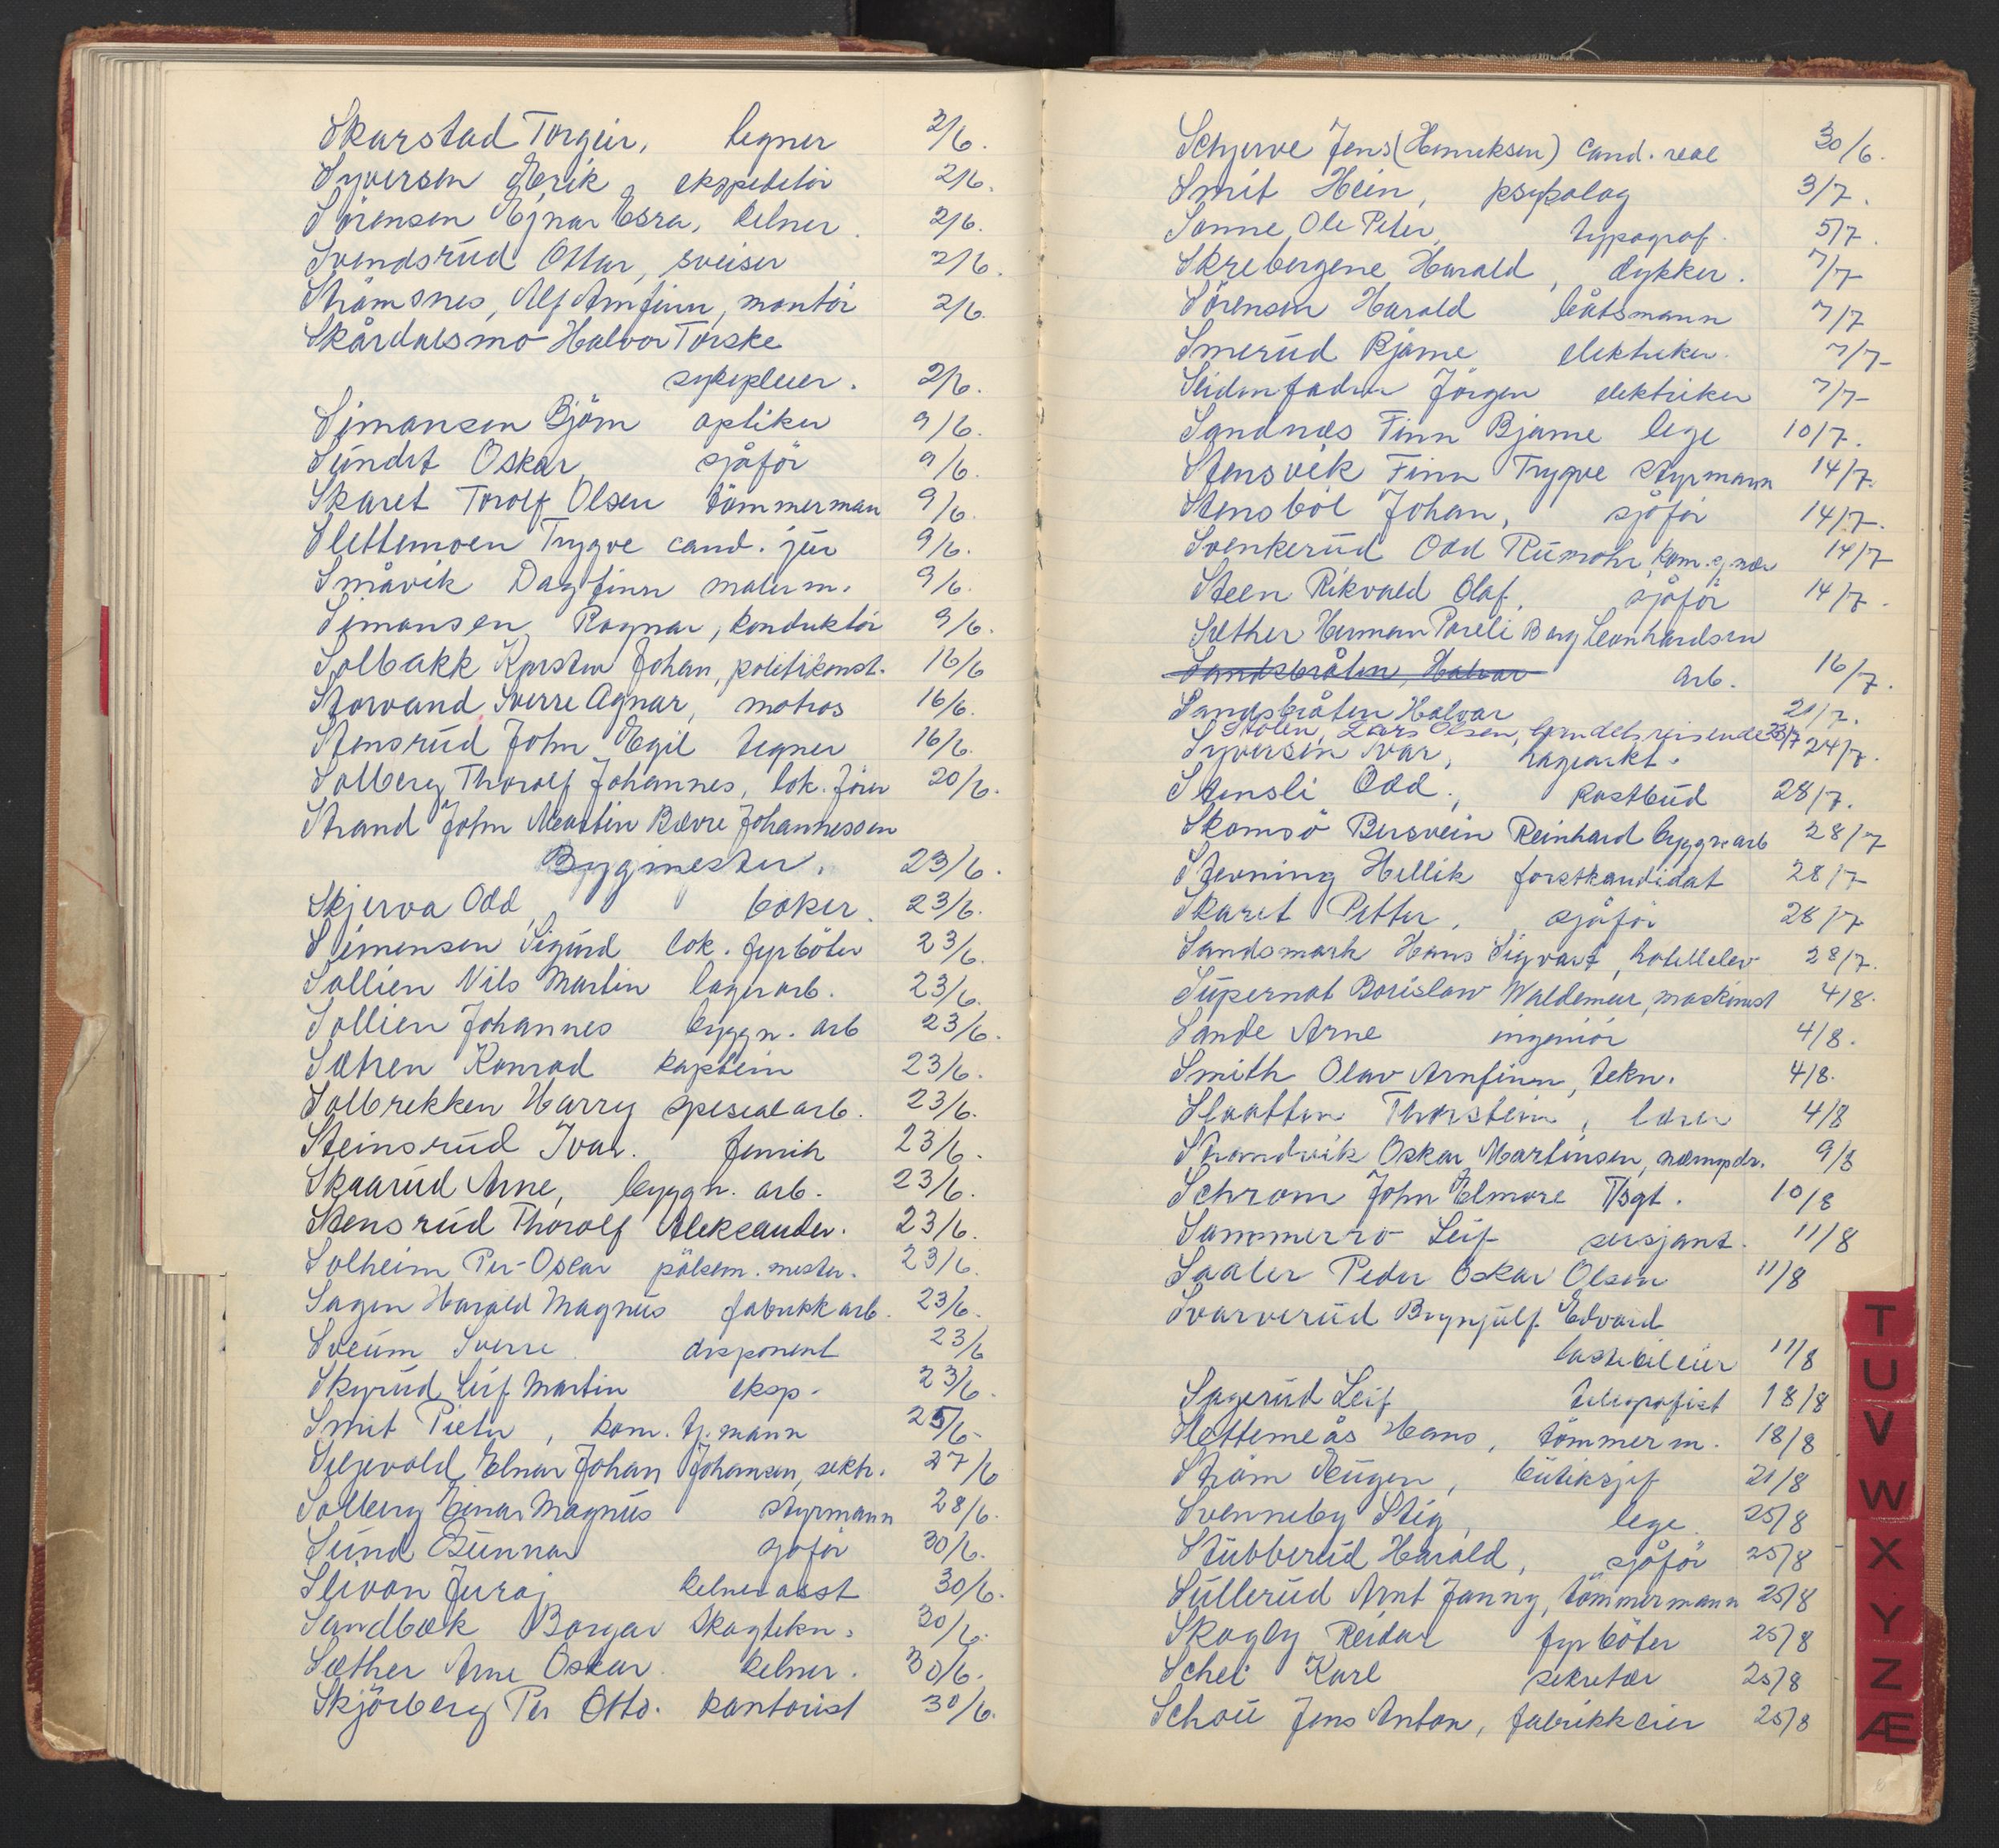 Skarstad Torgeir, tegner 2/6.
Syversen Erik, ekspeditör 2/6.
Sörensen Ejnar Esra, kelner. 2/6.
Svendsrud Ottar, sveiser 2/6.
Strömsnes, Alf Arnfinn, montör 2/6.
Skårdalsmo Halvor Torske
sykepleier. 2/6.
Simonsen Björn optiker 9/6.
Sundet Oskar, sjåför 9/6.
Skaret Torolf Olsen tömmerman 9/6.
Slettemoen Trygve cand. jur 9/6.
Småvik Dagfinn malerm. 9/6.
Simonsen Ragnar, konduktör 9/6.
Solbakk Karsten Johan, politikonst. 16/6
Storvand Sverre Agnar, matros 16/6.
Stensrud John Egil tegner 16/6.
Solberg Thorolf Johannes, lok. förer 20/6.
Strand John Martin Bævre Johannessen
Byggmester. 23/6.
Skjerva Odd, baker. 23/6.
Simensen Sigurd lok. fyrböter 23/6.
Sollien Nils Martin lagerarb. 23/6.
Sollien Johannes byggn. arb 23/6.
Sætren Konrad kaptein 23/6.
Solbrekken Harry spesialarb. 23/6.
Steinsrud Ivar. fenrik 23/6.
Skaarud Arne, byggn. arb. 23/6.
Stensrud Thorolf Aleksander. 23/6.
Solheim Per-Oskar pölsem. mester. 23/6.
Sagen Harald Magnus fabrikkarb. 23/6.
Sveum Sverre. disponent 23/6
Skyrud Leif Martin eksp. 23/6.
Smit Pieter, kom. tj. mann 25/6.
Seljevold Elnar Johan Johansen, sekr. 27/6
Solberg Einar Magnus styrmann 28/6.
Sund Gunnar sjåför 30/6.
Slivon Juraj kelnerasst 30/6.
Sandbæk Borgar Skogtekn. 30/6.
Sæther Arne Oskar. kelner. 30/6.
Skjörberg Per Otto. kontorist 30/6.
Schjerve Jens (Henriksen) cand. real 30/6.
Smit Hein, psykolog 3/7.
Sonne, Ole Peter, typograf. 5/7.
Skrebergene Harald, dykker. 7/7
Sörensen Harald båtsmann 7/7
Smerud Bjarne elektriker. 7/7
Seidenfaden Jörgen elektriker 7/7
Sandnæs Finn Bjarne lege 10/7.
Stensvik Finn Trygve styrmann 14/7.
Stensböl Johan, sjåför 14/7.
Svenkerud Odd Rumohr, 14/7
Steen Rikvald Olaf, sjåför 14/7.
Sæther Herman Pareli Berg Leonhardsen
Sandsbråten, Halvor arb. 16/7.
Sandsbråten Halvor 21/7.
Stölen, Lars Olsen, handelsreisende 23/7
Syversen Ivar, hagearkt. 24/7.
Stensli Odd., postbud 28/7.
Skomsö Bersvein Reinhard byggnarb 28/7
Stevning Hellik forstkandidat 28/7
Skaret Petter, sjåför 28/7
Sandsmark Hans Sigvart, hotellelev 28/7.
Supernat Borislaw Waldemar, maskinist 4/8.
Sande Arne ingeniör 4/8.
Smith Olav Arnfinn, tekn. 4/8.
Slaatten Thorstein, lærer 4/8
Strandvik Oskar Martinsen, 9/8
Schrom John Elmore T/sgt. 10/8
Sommerro Leif sersjant. 11/8
Saaler Peder Oskar Olsen 11/8
Svarverud Brynjulf Edvard
lastebileier 11/8
Sagerud Leif telegrafist 18/8
Slettemeås Hans, tömmerm. 18/8
Ström Eugen, butiksjef 21/8
Svenneby Stig, lege. 25/8
Stubberud Harald, sjåför 25/8
Sullerud Arnt Janny, tömmermann 25/8
Skogly Reidar fyrböter 25/8
Schei Karl sekretær 25/8
Schou Jens Anton, fabrikkeier 25/8
T
U
V
W
X
Y
Z
Æ